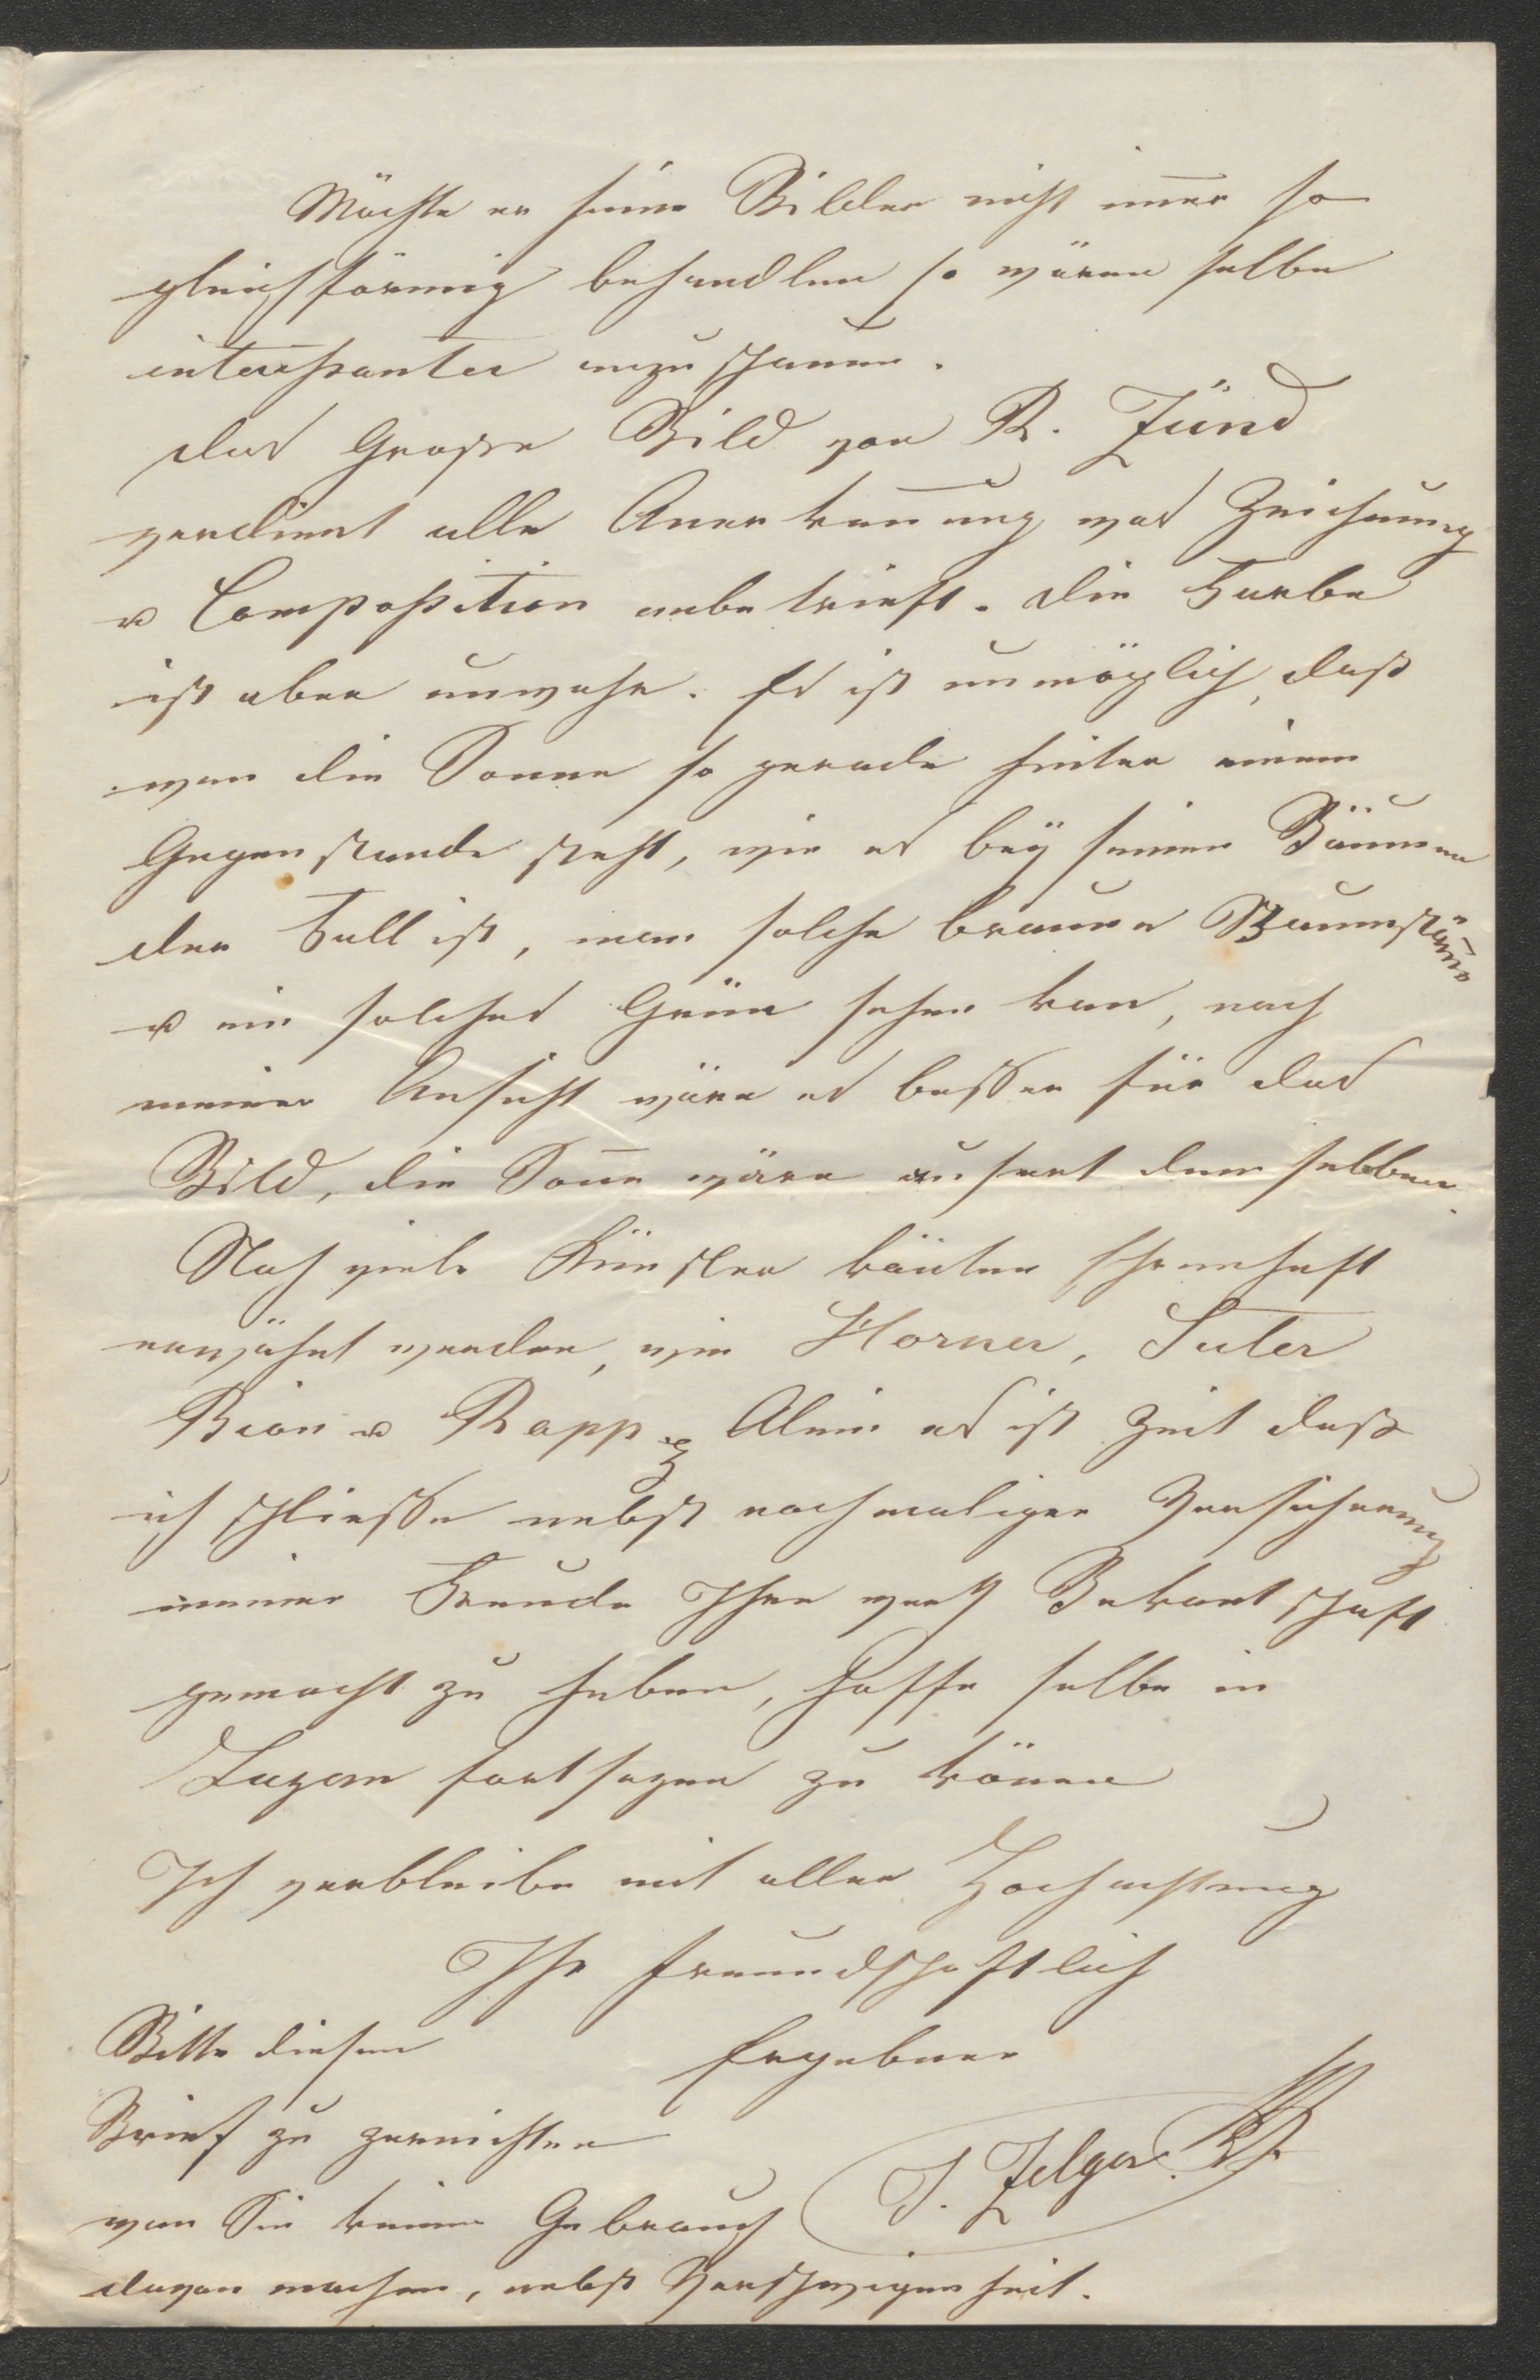 Möchte er seine Bilder nicht im̅er so
gleichförmig behandlen so wären selbe
interessanter anzuschauen.
das Grosse Bild von R. Zünd
verdient alle Anerken̅ung was Zeichnung
u Composition anbetrieft. die Farbe
ist aber unwahr. Es ist unmöglich, dass
wan die Sonne so gerade hinter einem
Gegenstande steht, wie es beÿ seinen Bäumen
der Fall ist, man solche braune Baumstäm̅e
u ein solches Grün sehen kan, nach
meiner Ansicht wäre es besser für das
Bild, die Son̅e wäre ausert demselben.
Noch viele Künstler könten Ehrenhaft
erwähnt werden, wie Horner, Suter
Bion u Rapp Alein es ist Zeit dass
ich schliesse nebst nochmaliger Versicherung
meiner Freude Ihre werth Bekantschaft
gemacht zu haben, hoffe selbe in
Luzern fortsezen zu könen
Ich verbleibe mit aller Hochachtung
Ihr freundschaftlich
Ergebner
J. Zelger
Bitte diesen
Brief zu zernichten
wan Sie keinen Gebrauch
davon machen, nebst Verschwigenheit.